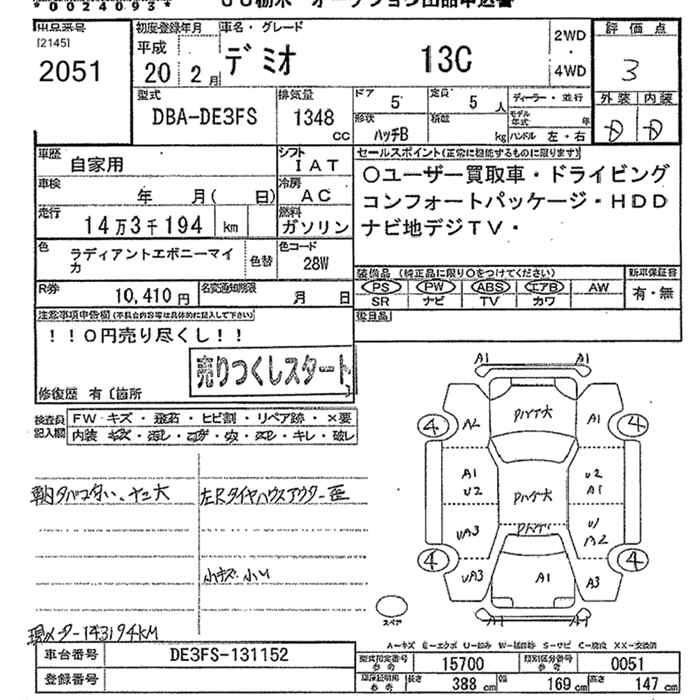 *00240953*
JU栃木 オークション出品申込書
出品番号 [2145]
2051
初度登録年月
平成
20 2月
車名・グレード
デミオ 13C
2WD
・
4WD
評価点
3
外装 内装
D D
型式
DBA-DE3FS
排気量
1348
CC
ドア 5
定員 5 人
形状
ハッチB
積載 kg
ディーラー・並行
モデル年式 年
ハンドル 左・右
車歴
自家用
シフト
IAT
車検
年 月( 日)
冷房
AC
走行
14万3千194 km
燃料
ガソリン
色
ラディアントエボニーマイカ
色替
色コード
28W
R券
10,410円
名変通知期限
月 日
セールスポイント(正常に機能するものに限ります)
○ユーザー買取車・ドライビング
コンフォートパッケージ・HDD
ナビ地デジTV・
装備品 (純正品に限り○をつけてください)
PS PW ABS エアB AW
SR ナビ TV カワ
新車保証書
有・無
後日品
注意事項申告欄(不具合内容等は具体的に記入して下さい)
!!0円売り尽くし!!
売りつくしスタート
修復歴 有〔箇所 〕
検査員記入欄
FW キズ・飛石・ヒビ割・リペア跡・×要
内装 キズ・汚レ・コゲ・穴・スレ・キレ・破レ
車内タバコ臭い、ヤニ大
左Rタイヤハウスアウター歪
小キズ 小U
現メーター143194KM
A1 A1
4 A2 パハゲ大 A1 4
A1
U2
パハゲ大
U2
A1
UA3 パハゲ U1
A2
4 UA3 A1 A3 4
A1 A1
スペア
A=キズ E=エクボ U=凹み W=補修跡 S=サビ C=腐食 XX=交換済
車台番号 DE3FS-131152
登録番号
型式指定番号 参考 15700
類別区分番号 参考 0051
車庫証明用 参考 長さ 388 cm 幅 169 cm 高さ 147 cm